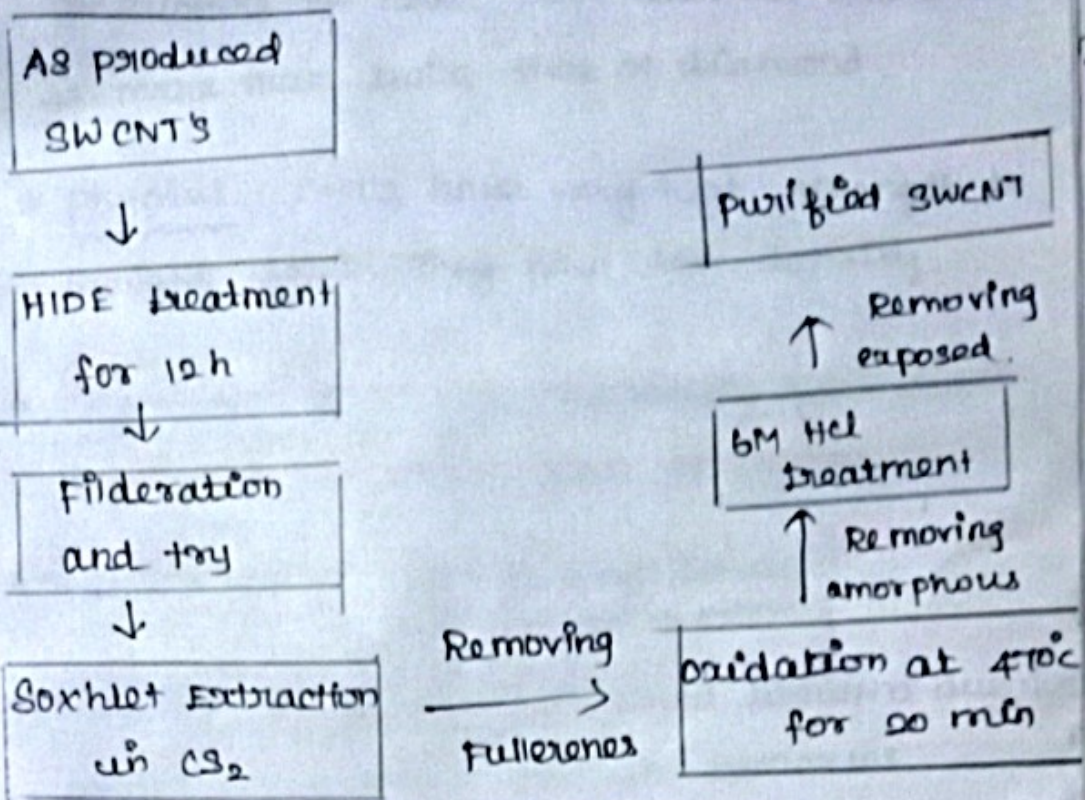 As produced
SWCNT's
↓
HIDE treatment
for 12h
↓
Filderation
and try
↓
Soxhlet Extraction
in CS₂
Removing
→
Fullerenes
oxidation at 470°c
for 20 min
↑ Removing
amorphous
6M Hcl
treatment
↑ Removing
exposed.
purified SWCNT